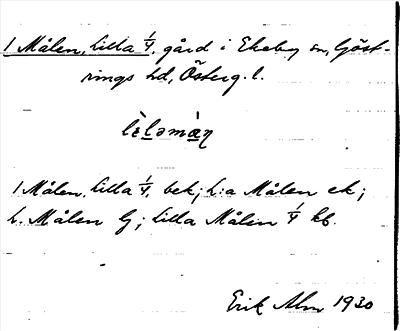 1 Målen, Lilla 1/4, gård i Ekeby sn, Göst-
rings hd, Österg. l.
lèləmàn
1 Målen, Lilla 1/4, bek; L:a Målen ek;
L. Målen G; Lilla Målen 1/4 kb.
Erik Alm 1930